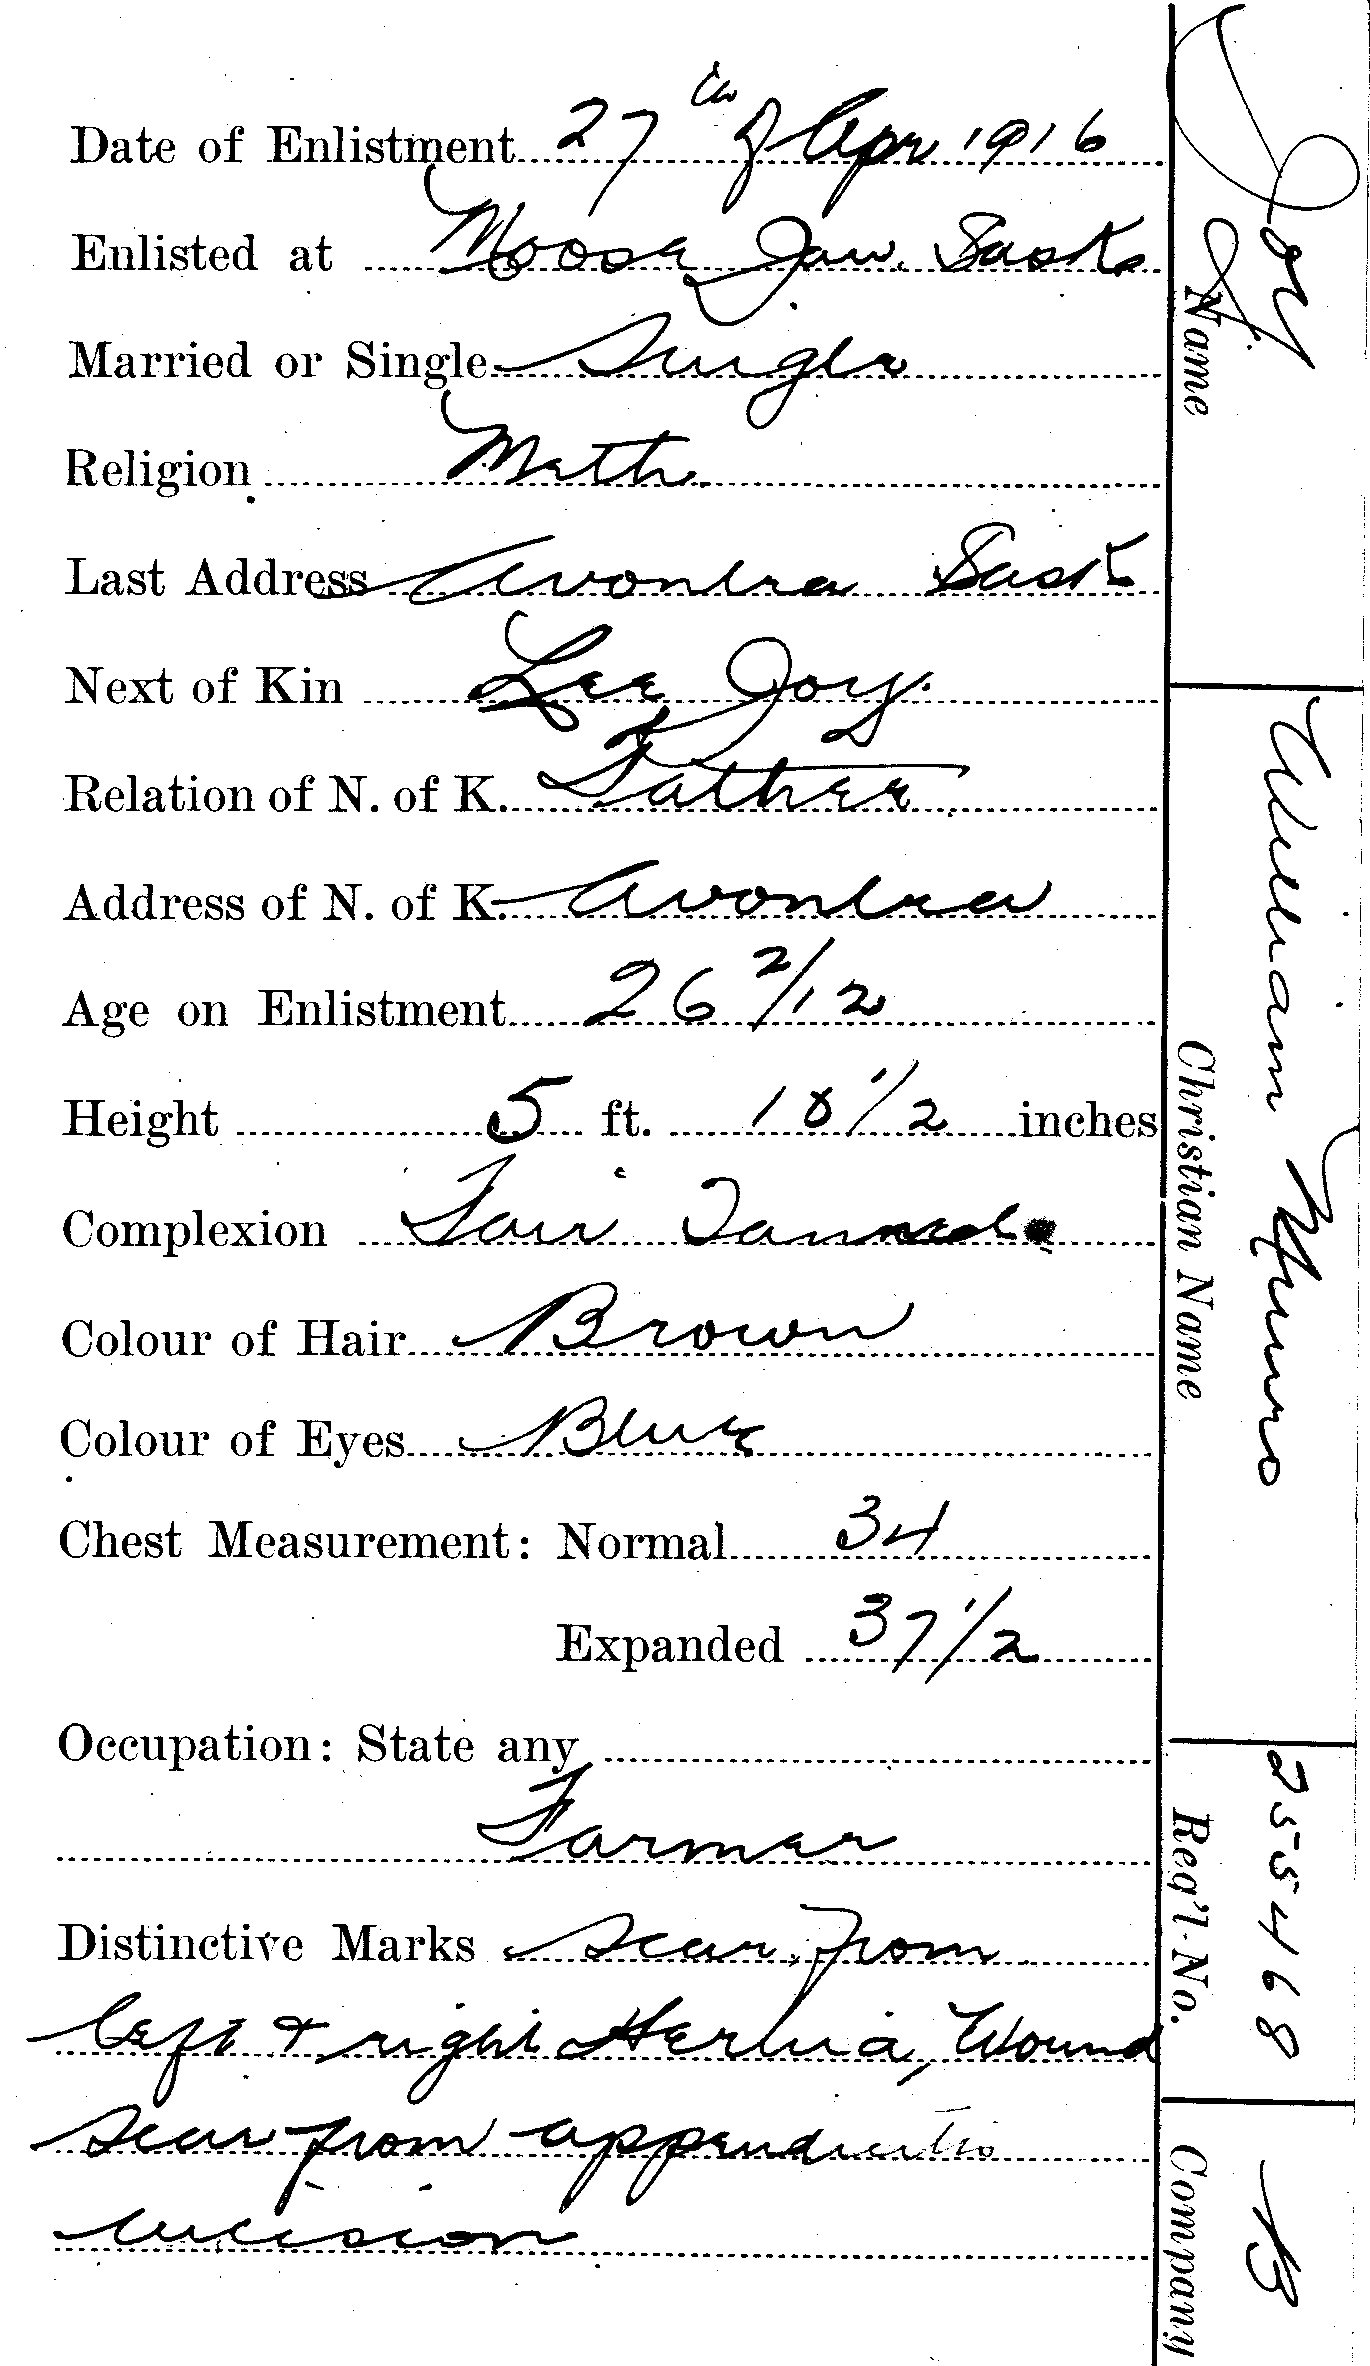 Date of Enlistment 27th of Apr 1916
Enlisted at Moose Jaw. Sask.
Married or Single Single
Religion Meth.
Last Address Avonlea Sask
Next of Kin Lee Joy.
Relation of N. of K. Father
Address of N. of K. Avonlea
Age on Enlistment 26 2/12
Height 5 ft. 10 1/2 inches
Complexion Fair Tanned
Colour of Hair Brown
Colour of Eyes Blue
Chest Measurement: Normal 34
Expanded 37 1/2
Occupation: State any
Farmer
Distinctive Marks Scar from
left & right Hernia, Wound
Scar from appendicitis
incision
Joy
Name
William Munro
Christian Name
255468
Reg'l No.
B
Company